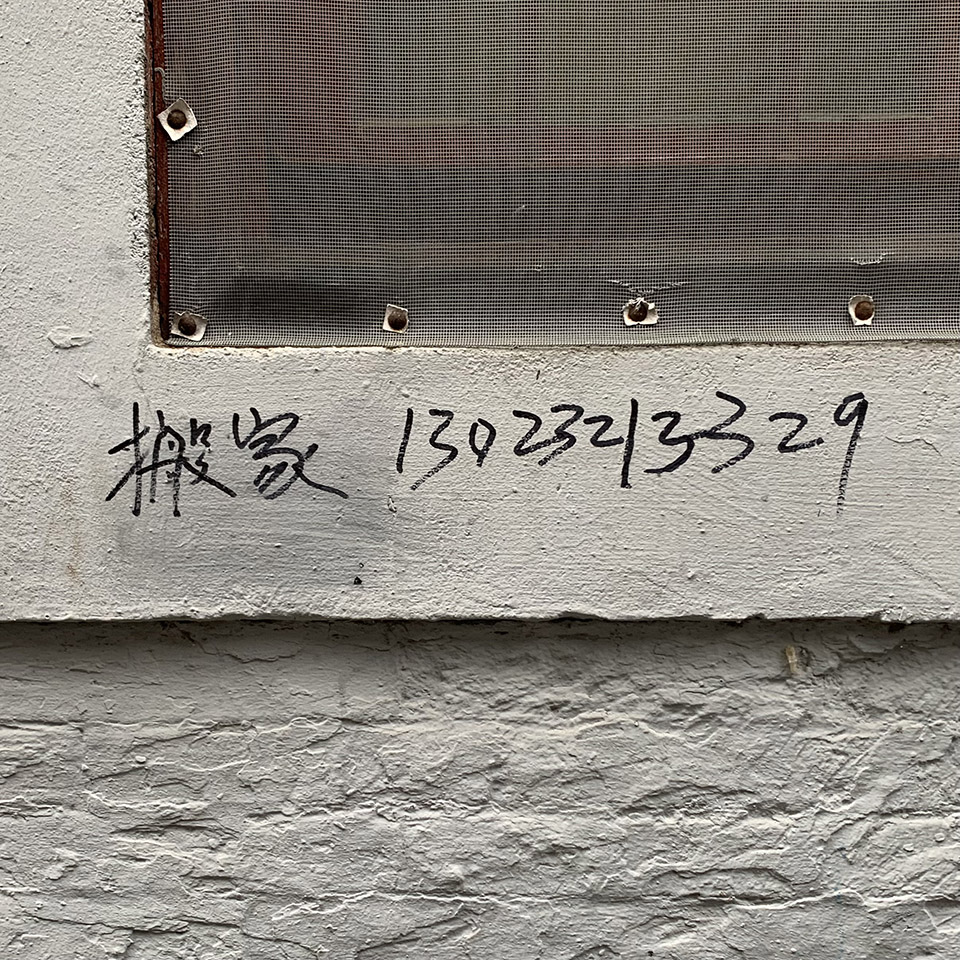 搬家 13023213329